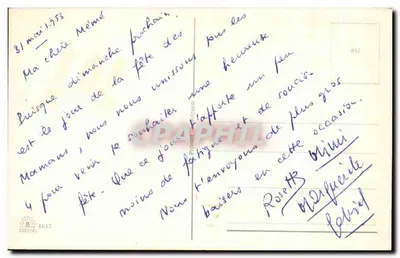 31 mai 1953
Ma chère Mémé
Puisque dimanche prochain
est le jour de la fête des
Mamans, nous nous unissons tous les
4 pour venir te souhaiter une heureuse
fête. Que ce jour t'apporte un peu
moins de fatigue et de soucis.
Nous t'envoyons de plus gros
baisers en cette occasion.
Mimi
Marguerite